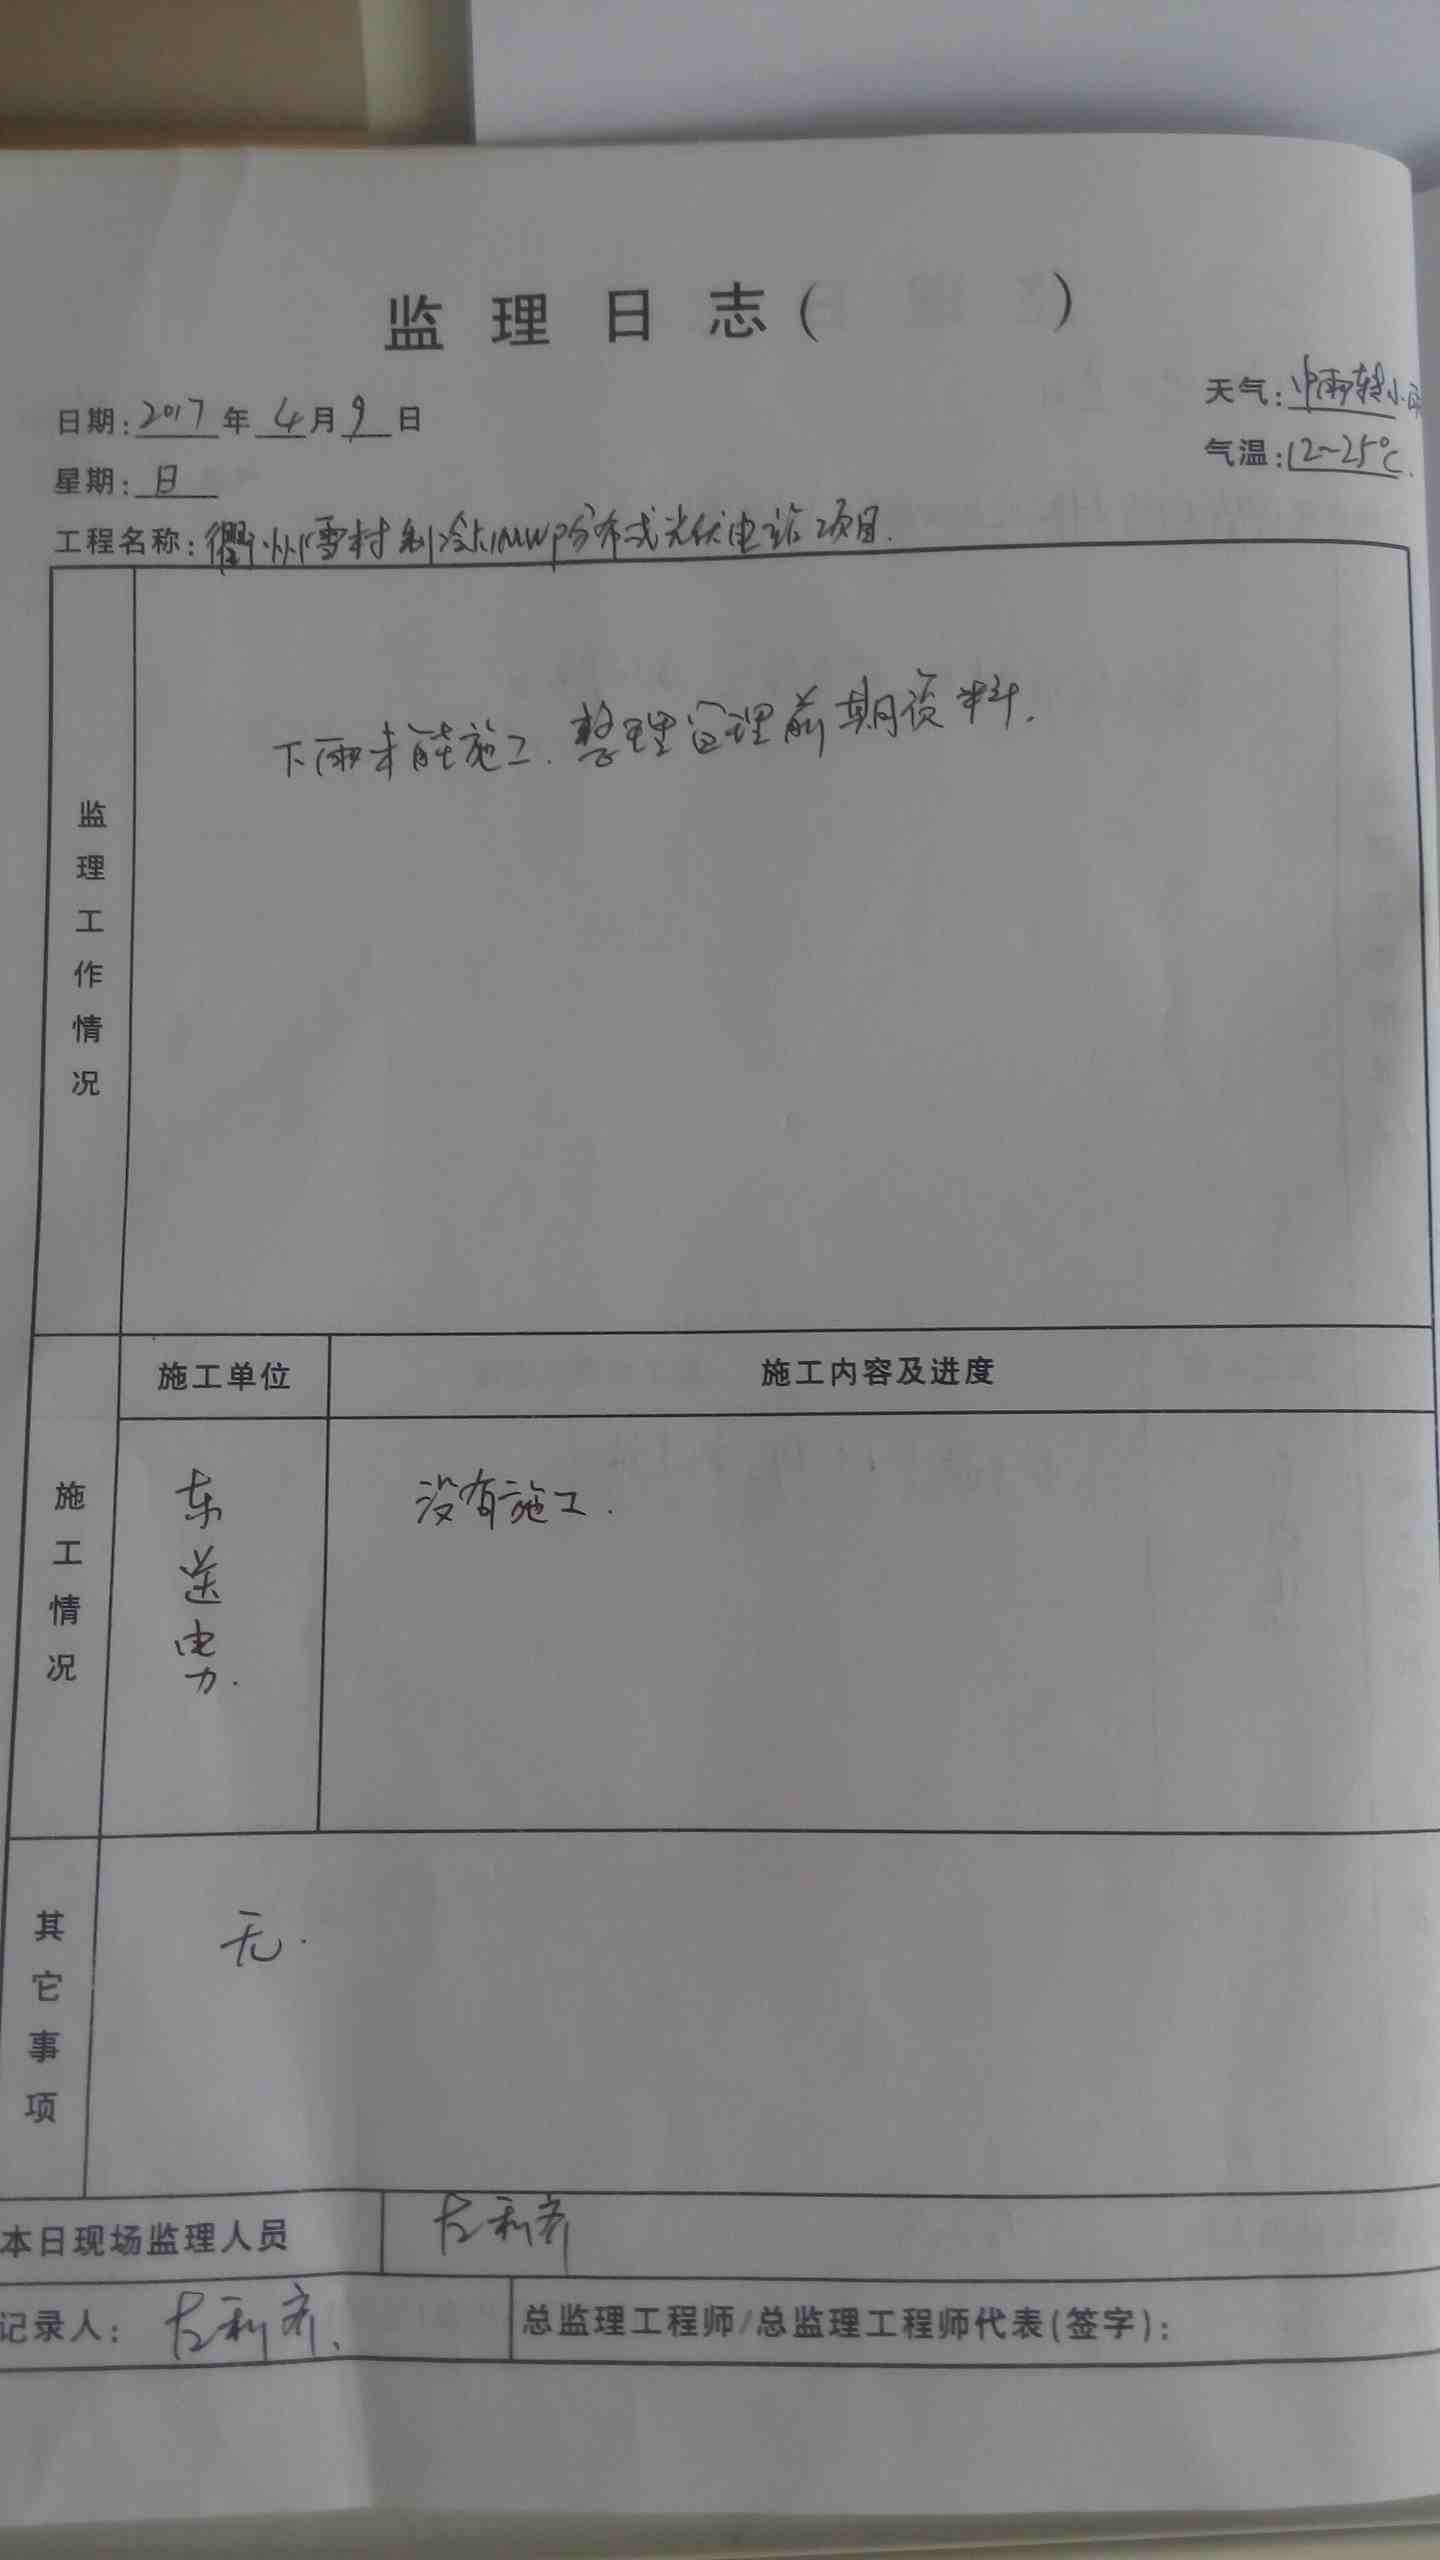 监理日志（ ）
日期：2017年4月9日
天气：中雨转小雨
星期：日
气温：12~25℃.
工程名称：衢州雪村制冷1MWp分布式光伏电站项目.
监理工作情况
下雨未能施工.整理监理前期资料.
施工情况
施工单位
施工内容及进度
东送电力.
没有施工.
其它事项
无.
本日现场监理人员
记录人：
总监理工程师/总监理工程师代表(签字)：